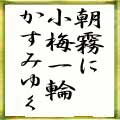 朝霧に
小梅一輪
かすみゆく